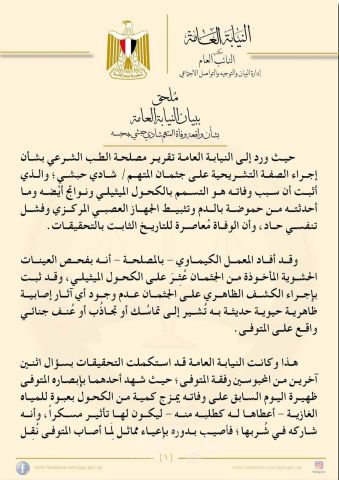 النيابة العامة
مكتب
النائب العام
إدارة البيان والتوجيه والتواصل الاجتماعي
مُلحق
ببيان النيابة العامة
بشأن واقعة وفاة المتهم شادي حبشي بمحبسه
حيث ورد إلى النيابة العامة تقرير مصلحة الطب الشرعي بشأن
إجراء الصفة التشريحية على جثمان المتهم/ شادي حبشي؛ والذي
أثبت أن سبب وفاته هو التسمم بالكحول الميثيلي ونواتج أيْضه وما
أحدثته من حموضة بالدم وتثبيط الجهاز العصبي المركزي وفشل
تنفسي حاد، وأن الوفاة مُعاصرة للتاريخ الثابت بالتحقيقات.
وقد أفاد المعمل الكيماوي – بالمصلحة – أنه بفحص العينات
الحشوية المأخوذة من الجثمان عُثِرَ على الكحول الميثيلي، وقد ثبت
بإجراء الكشف الظاهري على الجثمان عدم وجود أي آثار إصابية
ظاهرية حيوية حديثة به تُشير إلى تماسُك أو تجاذُب أو عُنف جنائي
واقع على المتوفى.
هذا وكانت النيابة العامة قد استكملت التحقيقات بسؤال اثنين
آخرين من المحبوسين رفقة المتوفى؛ حيث شهد أحدهما بإبصاره المتوفى
ظهيرة اليوم السابق على وفاته يمزج كمية من الكحول بعبوة للمياه
الغازية – أعطاها له كطلبه منه – ليكون لها تأثير مسكراً، وأنه
شاركه في شُربها؛ فأصيب بدوره بإعياء مماثل لما أصاب المتوفى نُقِل
(١)
www.facebook.com/ppo.gov.eg
www.instagram.com/ppo.gov.eg